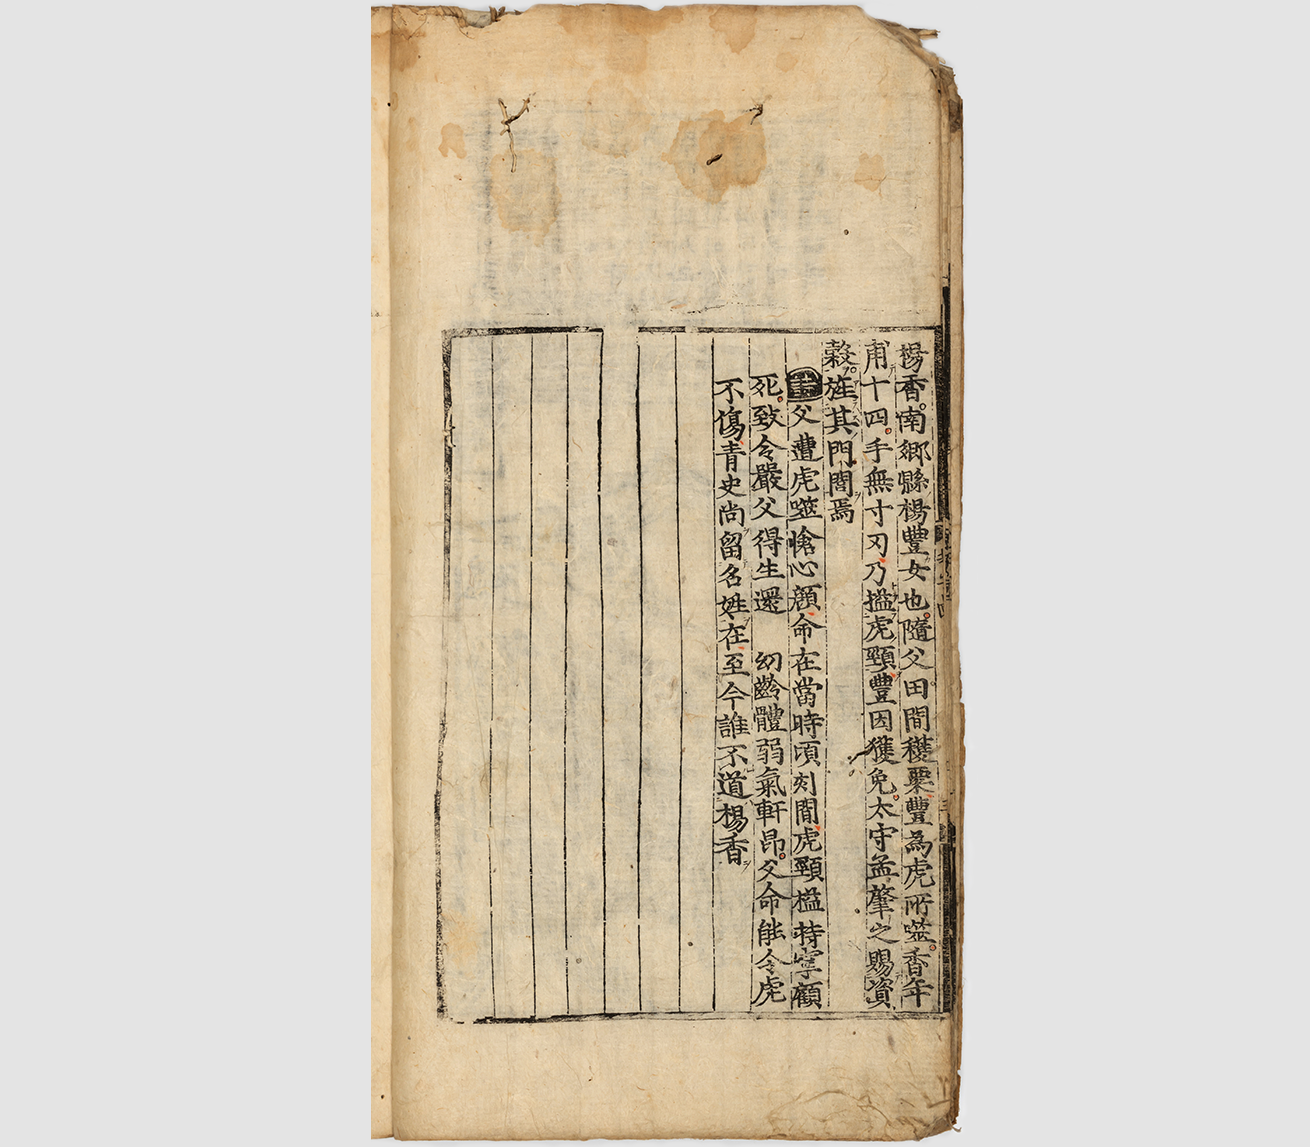 楊香南鄉縣楊豐女也隨父田間穫粟豐為虎所噬香年
甫十四手無寸刃乃搤虎頸豐因獲免太守孟肇之賜資
穀旌其門閭焉
詩父遭虎噬愴心顏命在當時頃刻間虎頸搤持寧顧
死致令嚴父得生還 幼齡體弱氣軒昂父命能令虎
不傷青史尚留名姓在至今誰不道楊香